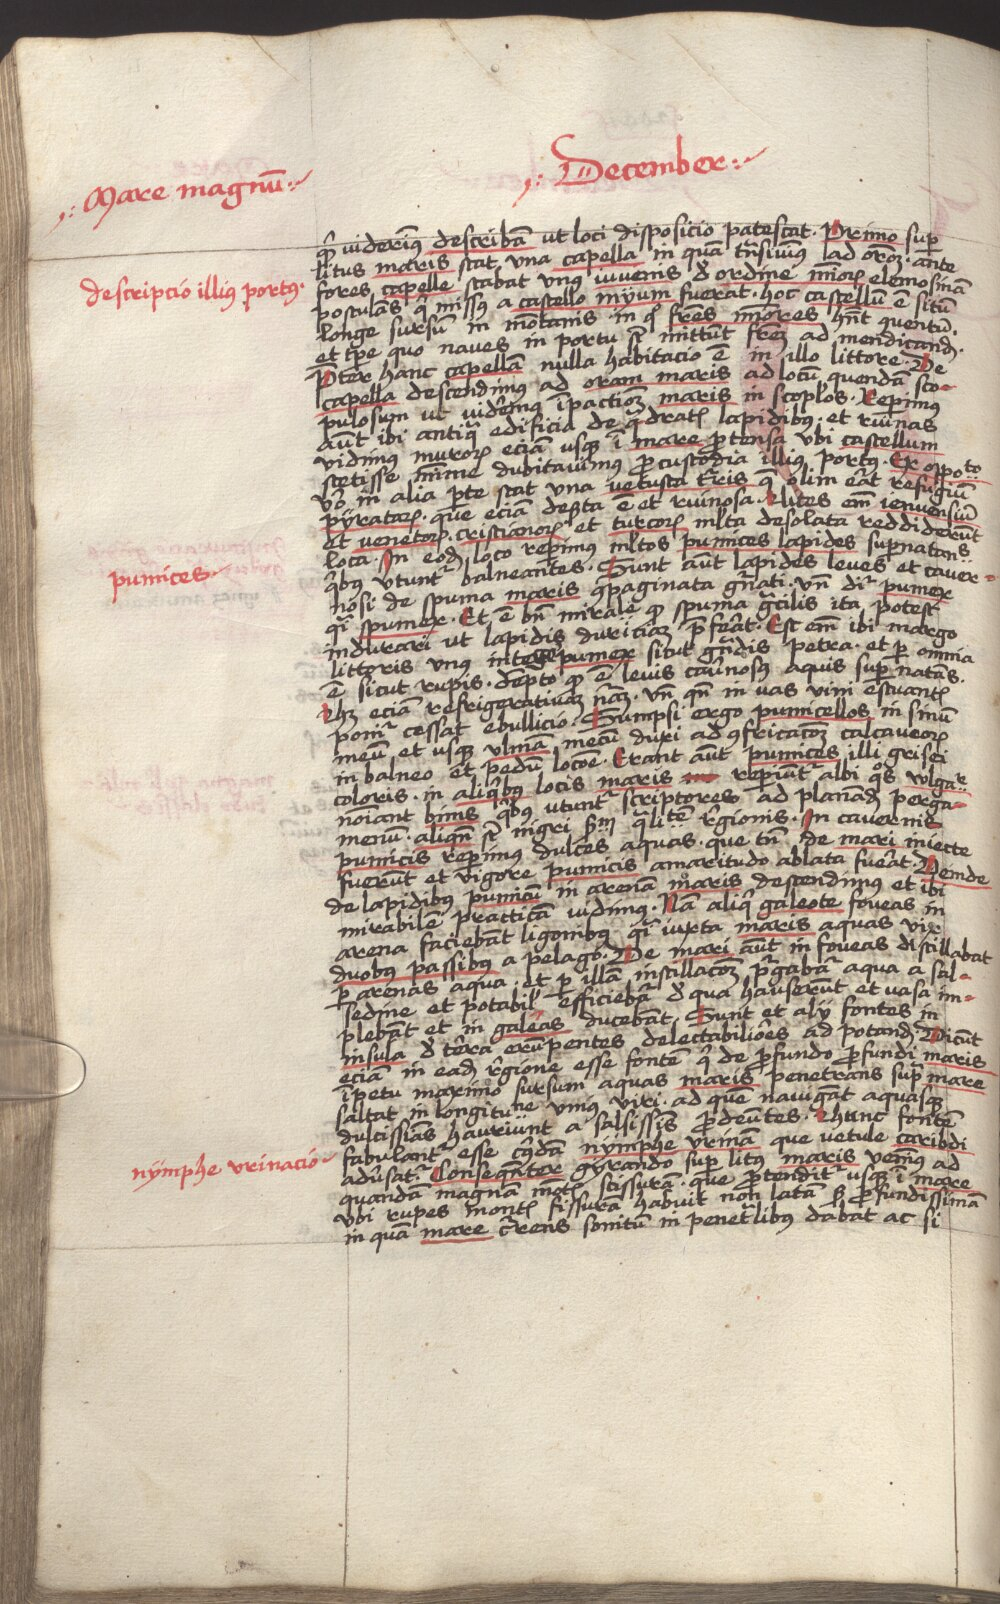 Mare magnū
December
descripcio illiꝰ portꝰ
pumices
nymphe vrinacio
q̄ viderimꝰ describā vt loci disposicio patescat. Primo sup
litus maris stat vna capella in quā trāsiuimꝰ ad orōeꝫ. ante
fores capelle stabat vnꝰ iuvenis de ordine mīorꝫ elemosinā
postulās q̄ missꝰ a castello fuerat. hoc castellū ē sitū
longe sursū in mōtanis. in qͦ fr̄es mīores hn̄t quentū.
et tp̄e quo naves in portu sт̄ mittūt fr̄eꝫ ad mendicandꝫ.
Pter hanc capellā nulla habitacio ē in illo littore. De
capella descendimꝰ ad oram maris ad locū quendā sco-
pulosum vt viderēmꝰ īpactionꝫ maris in scopulos. Reperimꝰ
aūt ibi antiq̄ edificia de q̄dratis lapidibꝰ. et ruinas
vidimꝰ murorꝫ eciā usqꝫ ī mare protensa vbi castellum
stetisse mīme dubitavimꝰ pro custodia illiꝰ portꝰ. Ex opposito
vō in alia pte stat vna vetusta tr̄ris q̄ olim erat refugiū
pyratarꝫ. que eciā deserta ē et ruinosa. Lites em̄ ienuensiū
et venetorꝫ. cristianorꝫ et turcorꝫ ml̄ta desolata reddiderūt
loca. In eodꝫ loco reperimꝰ ml̄tos pumices lapides sup̄natans
qͥbꝰ vtunt balneantes. Sunt aūt lapides leves et caver-
nosi de spuma maris gn̄ati. vn̄ dr̄ pumex
q̄i spumex. Et ē bn̄ mirabile qͥ spuma ita potest
indurari vt lapidis duriciam p̄ferat. Est em̄ ibi margo
littoris vnꝰ integer pumex sicut gn̄dis petra. et p omnia
ē sicut rupis. dēpto qͥ ē levis cav̄nosꝰ aquis sup̄natās.
Hꝫ eciā refrigerativam nāꝫ. vn̄ qn̄ in vas vini estuantis
ponit cessat ebullicio. Sumpsi ergo pumicellos in sinū
meū et usqꝫ vlmā mecū duxi ad ꝯfricacōꝫ calcaneorꝫ
in balneo et pedū Erant aūt pumices illi grisei
coloris. in aliqͥbꝰ locis maris repiūt albi qͦs vulgar
noīant bims qͥbꝰ vtunt scriptores ad planandꝫ perga-
menū. aliqn̄ sт̄ nigri sm̄ q̄litatē regionis. In cavernis
pumicis reperimꝰ dulces aquas. que tn̄ de mari iniecte
fuerūt et vigore pumicis amaritudo ablata fuerat. Deinde
de lapidibꝰ pumicū in arenam maris descendimꝰ et ibi
mirabilē practicā vidimꝰ. Nā aliqͥ galeote foveas in
arena faciebāt ligonibꝰ q̄i iuxta maris aquas vix
duobꝰ passibꝰ a pelago. De mari aūt in foveas distillabat
p arenas aqua. et p illā instillacōꝫ purgabat aqua a sal-
sedine et potabilꝰ efficiebat de qua hauserūt et vasa im-
plebāt et in galeas ducebant. Sunt et alij fontes in
insula de terra erūpentes delectabiliores ad potandꝫ. Dicūt
eciā in eadꝫ regione esse fontē qͥ de profundo profundi maris
īpetu maximo sursum aquas maris penetrans supra mare
saltat in longitudine vniꝰ viri. ad quē navigāt aquasqꝫ
dulcissimās hauriunt a salsissimis prodeuntes. Hunc fontē
fabulant esse cuiꝰdā nymphe vrinā que vetule caribdi
adūsat. Conseqn̄ter gyrando sup litꝰ maris venimꝰ ad
quandā magnā mōtis scissurā. que protendit usqꝫ ī mare
vbi rupes montis fissurā habuit non latā sꝫ profundissimā
in quā mare cr̄rens sonitum in penetralibꝰ dabat ac si